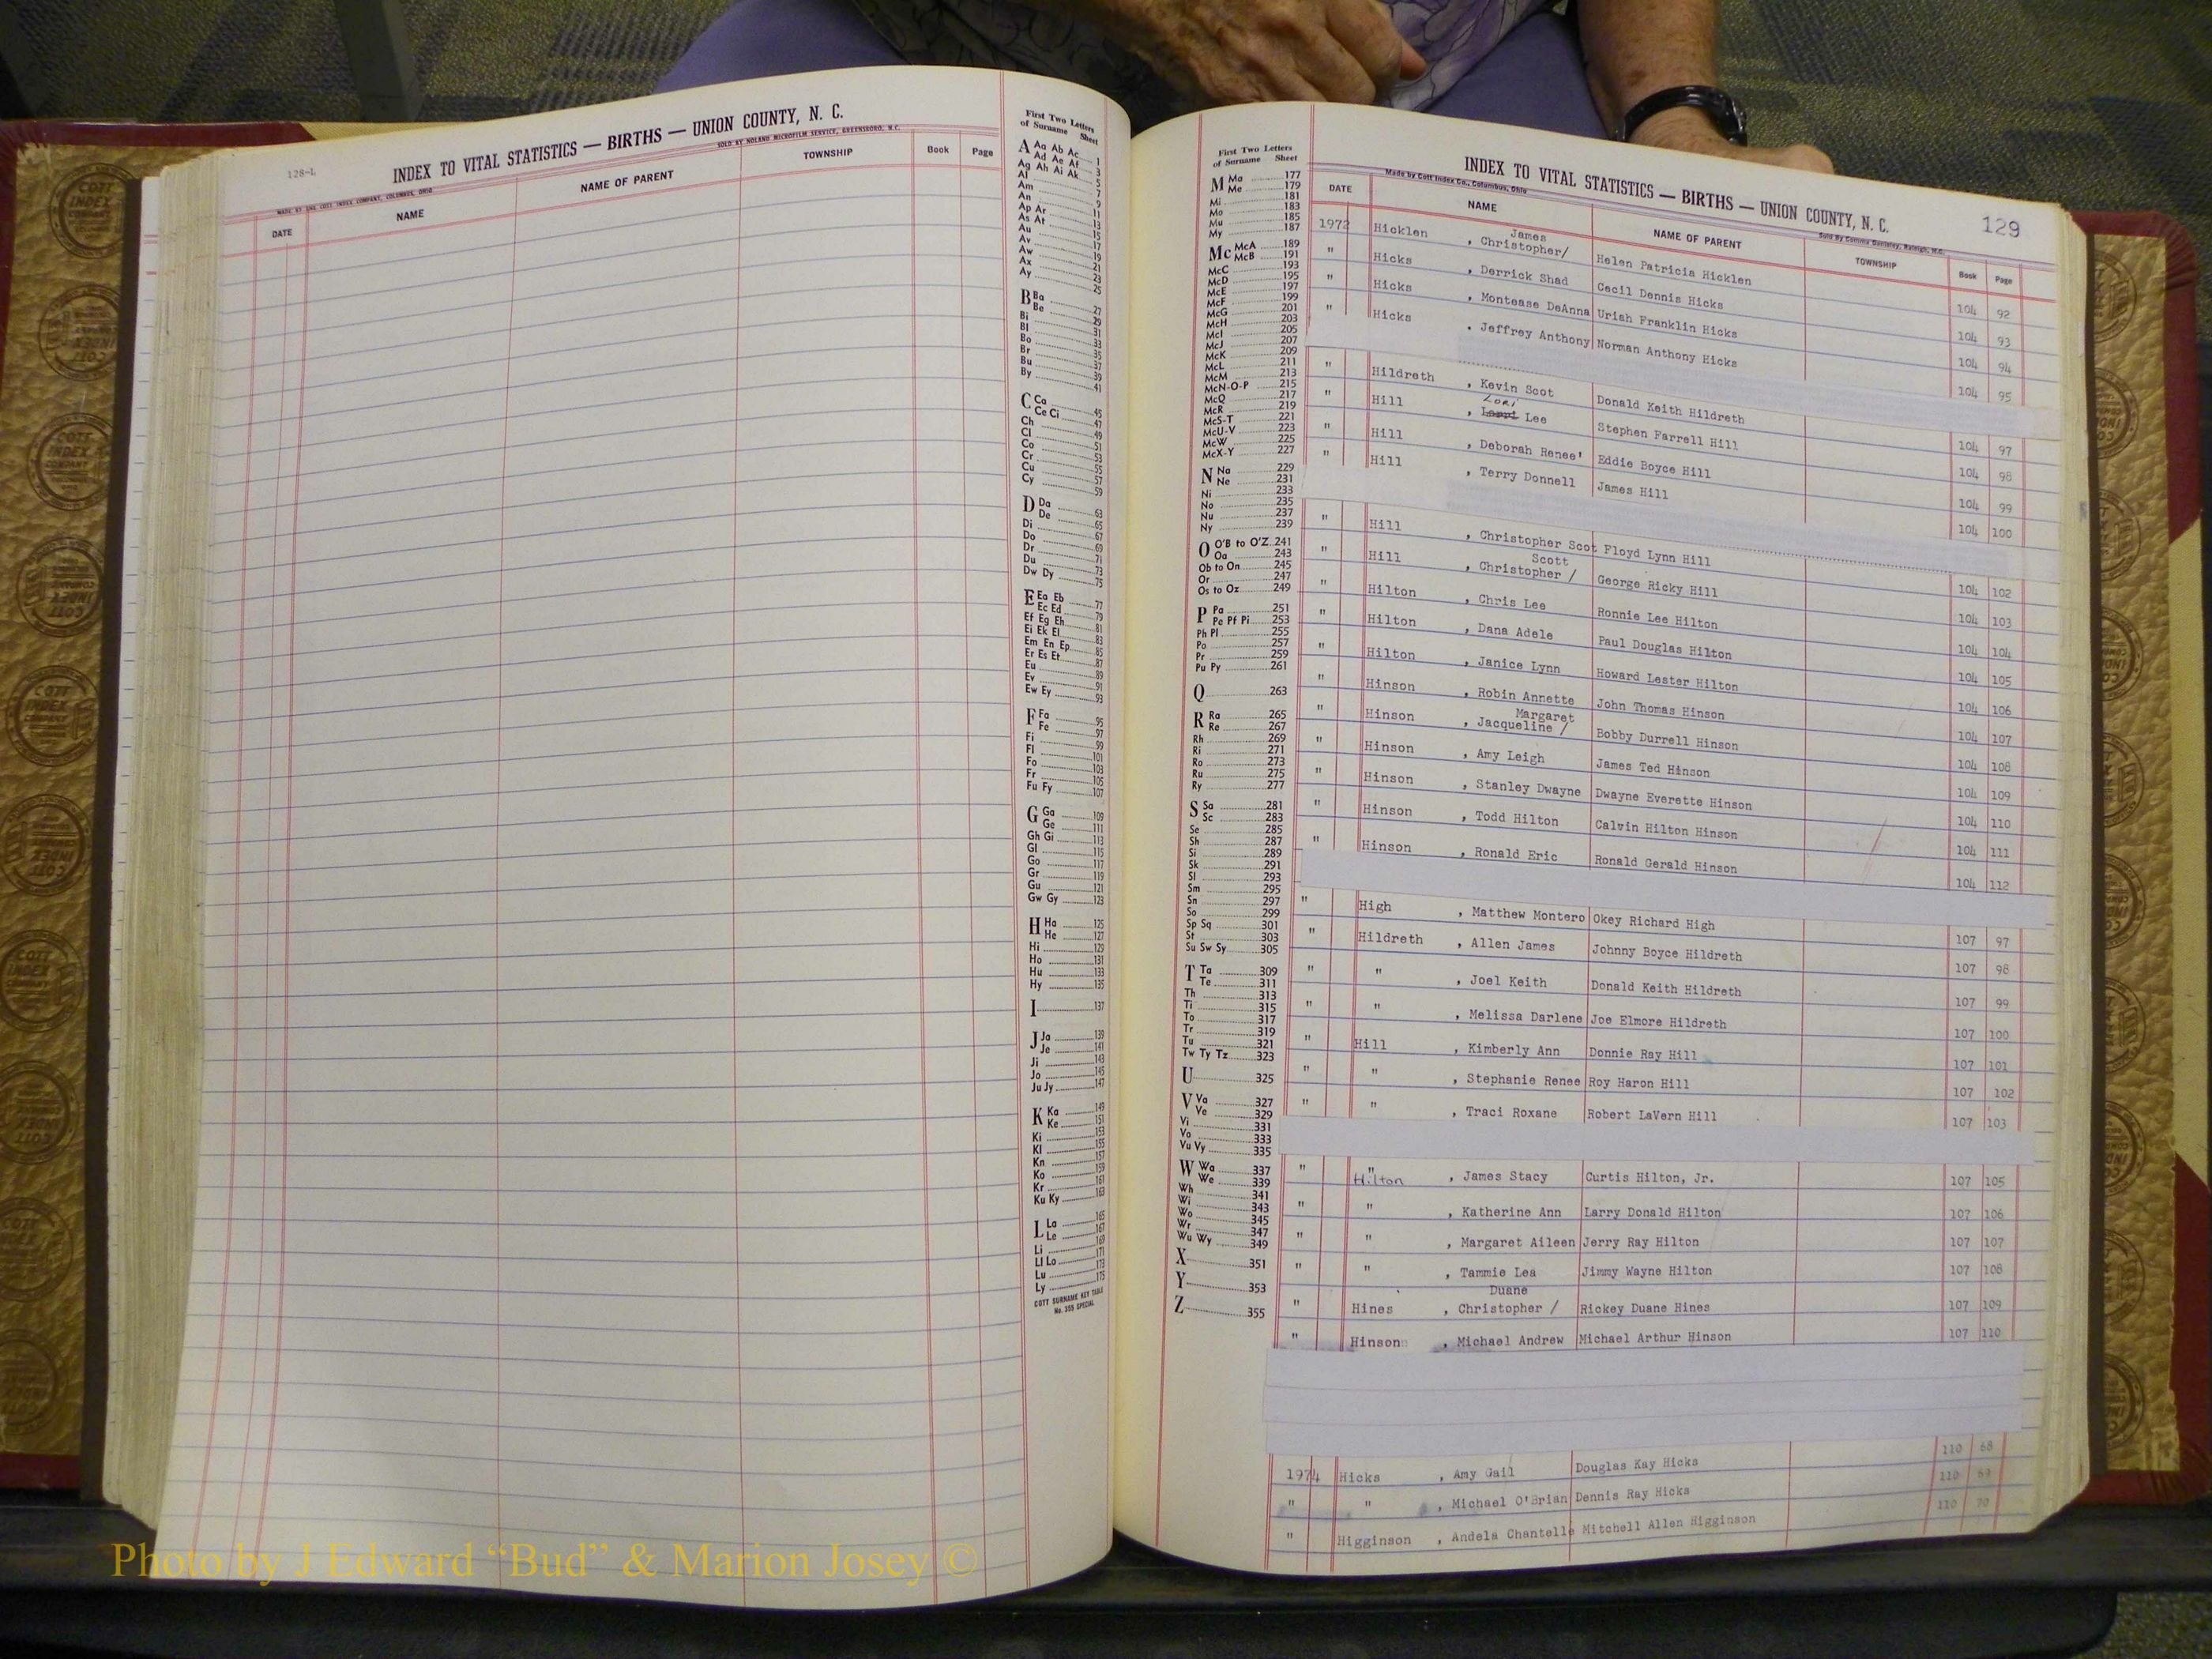 128-L
INDEX TO VITAL STATISTICS — BIRTHS — UNION COUNTY, N. C.
MADE BY THE COTT INDEX COMPANY, COLUMBUS, OHIO
SOLD BY NOLAND MICROFILM SERVICE, GREENSBORO, N.C.
DATE NAME NAME OF PARENT TOWNSHIP Book Page
First Two Letters
of Surname Sheet
A Aa Ab Ac 1
Ad Ae Af 3
Ag Ah Ai Ak 5
Al 7
Am 9
An 11
Ap Ar 13
As At 15
Au 17
Av 19
Aw 21
Ax 23
Ay 25
B Ba 27
Be 29
Bi 31
Bl 33
Bo 35
Br 37
Bu 39
By 41
C Ca 45
Ce Ci 47
Ch 49
Cl 51
Co 53
Cr 55
Cu 57
Cy 59
D Da 63
De 65
Di 67
Do 69
Dr 71
Du 73
Dw Dy 75
E Ea Eb 77
Ec Ed 79
Ef Eg Eh 81
Ei Ek El 83
Em En Ep 85
Er Es Et 87
Eu 89
Ev 91
Ew Ey 93
F Fa 95
Fe 97
Fi 99
Fl 101
Fo 103
Fr 105
Fu Fy 107
G Ga 109
Ge 111
Gh Gi 113
Gl 115
Go 117
Gr 119
Gu 121
Gw Gy 123
H Ha 125
He 127
Hi 129
Ho 131
Hu 133
Hy 135
I 137
J Ja 139
Je 141
Ji 143
Jo 145
Ju Jy 147
K Ka 149
Ke 151
Ki 153
Kl 155
Kn 157
Ko 159
Kr 161
Ku Ky 163
L La 165
Le 167
Li 169
Ll Lo 171
Lu 173
Ly 175
COTT SURNAME KEY TABLE
No. 355 SPECIAL
First Two Letters
of Surname Sheet
M Ma 177
Me 179
Mi 181
Mo 183
Mu 185
My 187
Mc McA 189
McB 191
McC 193
McD 195
McE 197
McF 199
McG 201
McH 203
McI 205
McJ 207
McK 209
McL 211
McM 213
McN-O-P 215
McQ 217
McR 219
McS-T 221
McU-V 223
McW 225
McX-Y 227
N Na 229
Ne 231
Ni 233
No 235
Nu 237
Ny 239
O O'B to O'Z 241
Oa 243
Ob to On 245
Or 247
Os to Oz 249
P Pa 251
Pe Pf Pi 253
Ph Pl 255
Po 257
Pr 259
Pu Py 261
Q 263
R Ra 265
Re 267
Rh 269
Ri 271
Ro 273
Ru 275
Ry 277
S Sa 281
Sc 283
Se 285
Sh 287
Si 289
Sk 291
Sl 293
Sm 295
Sn 297
So 299
Sp Sq 301
St 303
Su Sw Sy 305
T Ta 309
Te 311
Th 313
Ti 315
To 317
Tr 319
Tu 321
Tw Ty Tz 323
U 325
V Va 327
Ve 329
Vi 331
Vo 333
Vu Vy 335
W Wa 337
We 339
Wh 341
Wi 343
Wo 345
Wr 347
Wu Wy 349
X 351
Y 353
Z 355
INDEX TO VITAL STATISTICS — BIRTHS — UNION COUNTY, N. C. 129
Made by Cott Index Co., Columbus, Ohio
DATE NAME NAME OF PARENT TOWNSHIP Book Page
James
1972 Hicklen , Christopher/ Helen Patricia Hicklen 104 92
" Hicks , Derrick Shad Cecil Dennis Hicks 104 93
" Hicks , Montease DeAnna Uriah Franklin Hicks 104 94
" Hicks , Jeffrey Anthony Norman Anthony Hicks 104 95
" Hildreth , Kevin Scot Donald Keith Hildreth 104 97
Lori
" Hill , Lee Stephen Farrell Hill 104 98
" Hill , Deborah Renee' Eddie Boyce Hill 104 99
" Hill , Terry Donnell James Hill 104 100
" Hill , Christopher Scot Floyd Lynn Hill 104 102
Scott
" Hill , Christopher / George Ricky Hill 104 103
" Hilton , Chris Lee Ronnie Lee Hilton 104 104
" Hilton , Dana Adele Paul Douglas Hilton 104 105
" Hilton , Janice Lynn Howard Lester Hilton 104 106
" Hinson , Robin Annette John Thomas Hinson 104 107
Margaret
" Hinson , Jacqueline / Bobby Durrell Hinson 104 108
" Hinson , Amy Leigh James Ted Hinson 104 109
" Hinson , Stanley Dwayne Dwayne Everette Hinson 104 110
" Hinson , Todd Hilton Calvin Hilton Hinson 104 111
" Hinson , Ronald Eric Ronald Gerald Hinson 104 112
" High , Matthew Montero Okey Richard High 107 97
" Hildreth , Allen James Johnny Boyce Hildreth 107 98
" " , Joel Keith Donald Keith Hildreth 107 99
" " , Melissa Darlene Joe Elmore Hildreth 107 100
" Hill , Kimberly Ann Donnie Ray Hill 107 101
" " , Stephanie Renee Roy Haron Hill 107 102
" " , Traci Roxane Robert LaVern Hill 107 103
" " Hilton , James Stacy Curtis Hilton, Jr. 107 105
" " , Katherine Ann Larry Donald Hilton 107 106
" " , Margaret Aileen Jerry Ray Hilton 107 107
" " , Tammie Lea Jimmy Wayne Hilton 107 108
Duane
" Hines , Christopher / Rickey Duane Hines 107 109
" Hinson , Michael Andrew Michael Arthur Hinson 107 110
1974 Hicks , Amy Gail Douglas Kay Hicks 110 68
" " , Michael O'Brian Dennis Ray Hicks 110 69
" Higginson , Andela Chantelle Mitchell Allen Higginson 110 70
Photo by J Edward “Bud” & Marion Josey ©